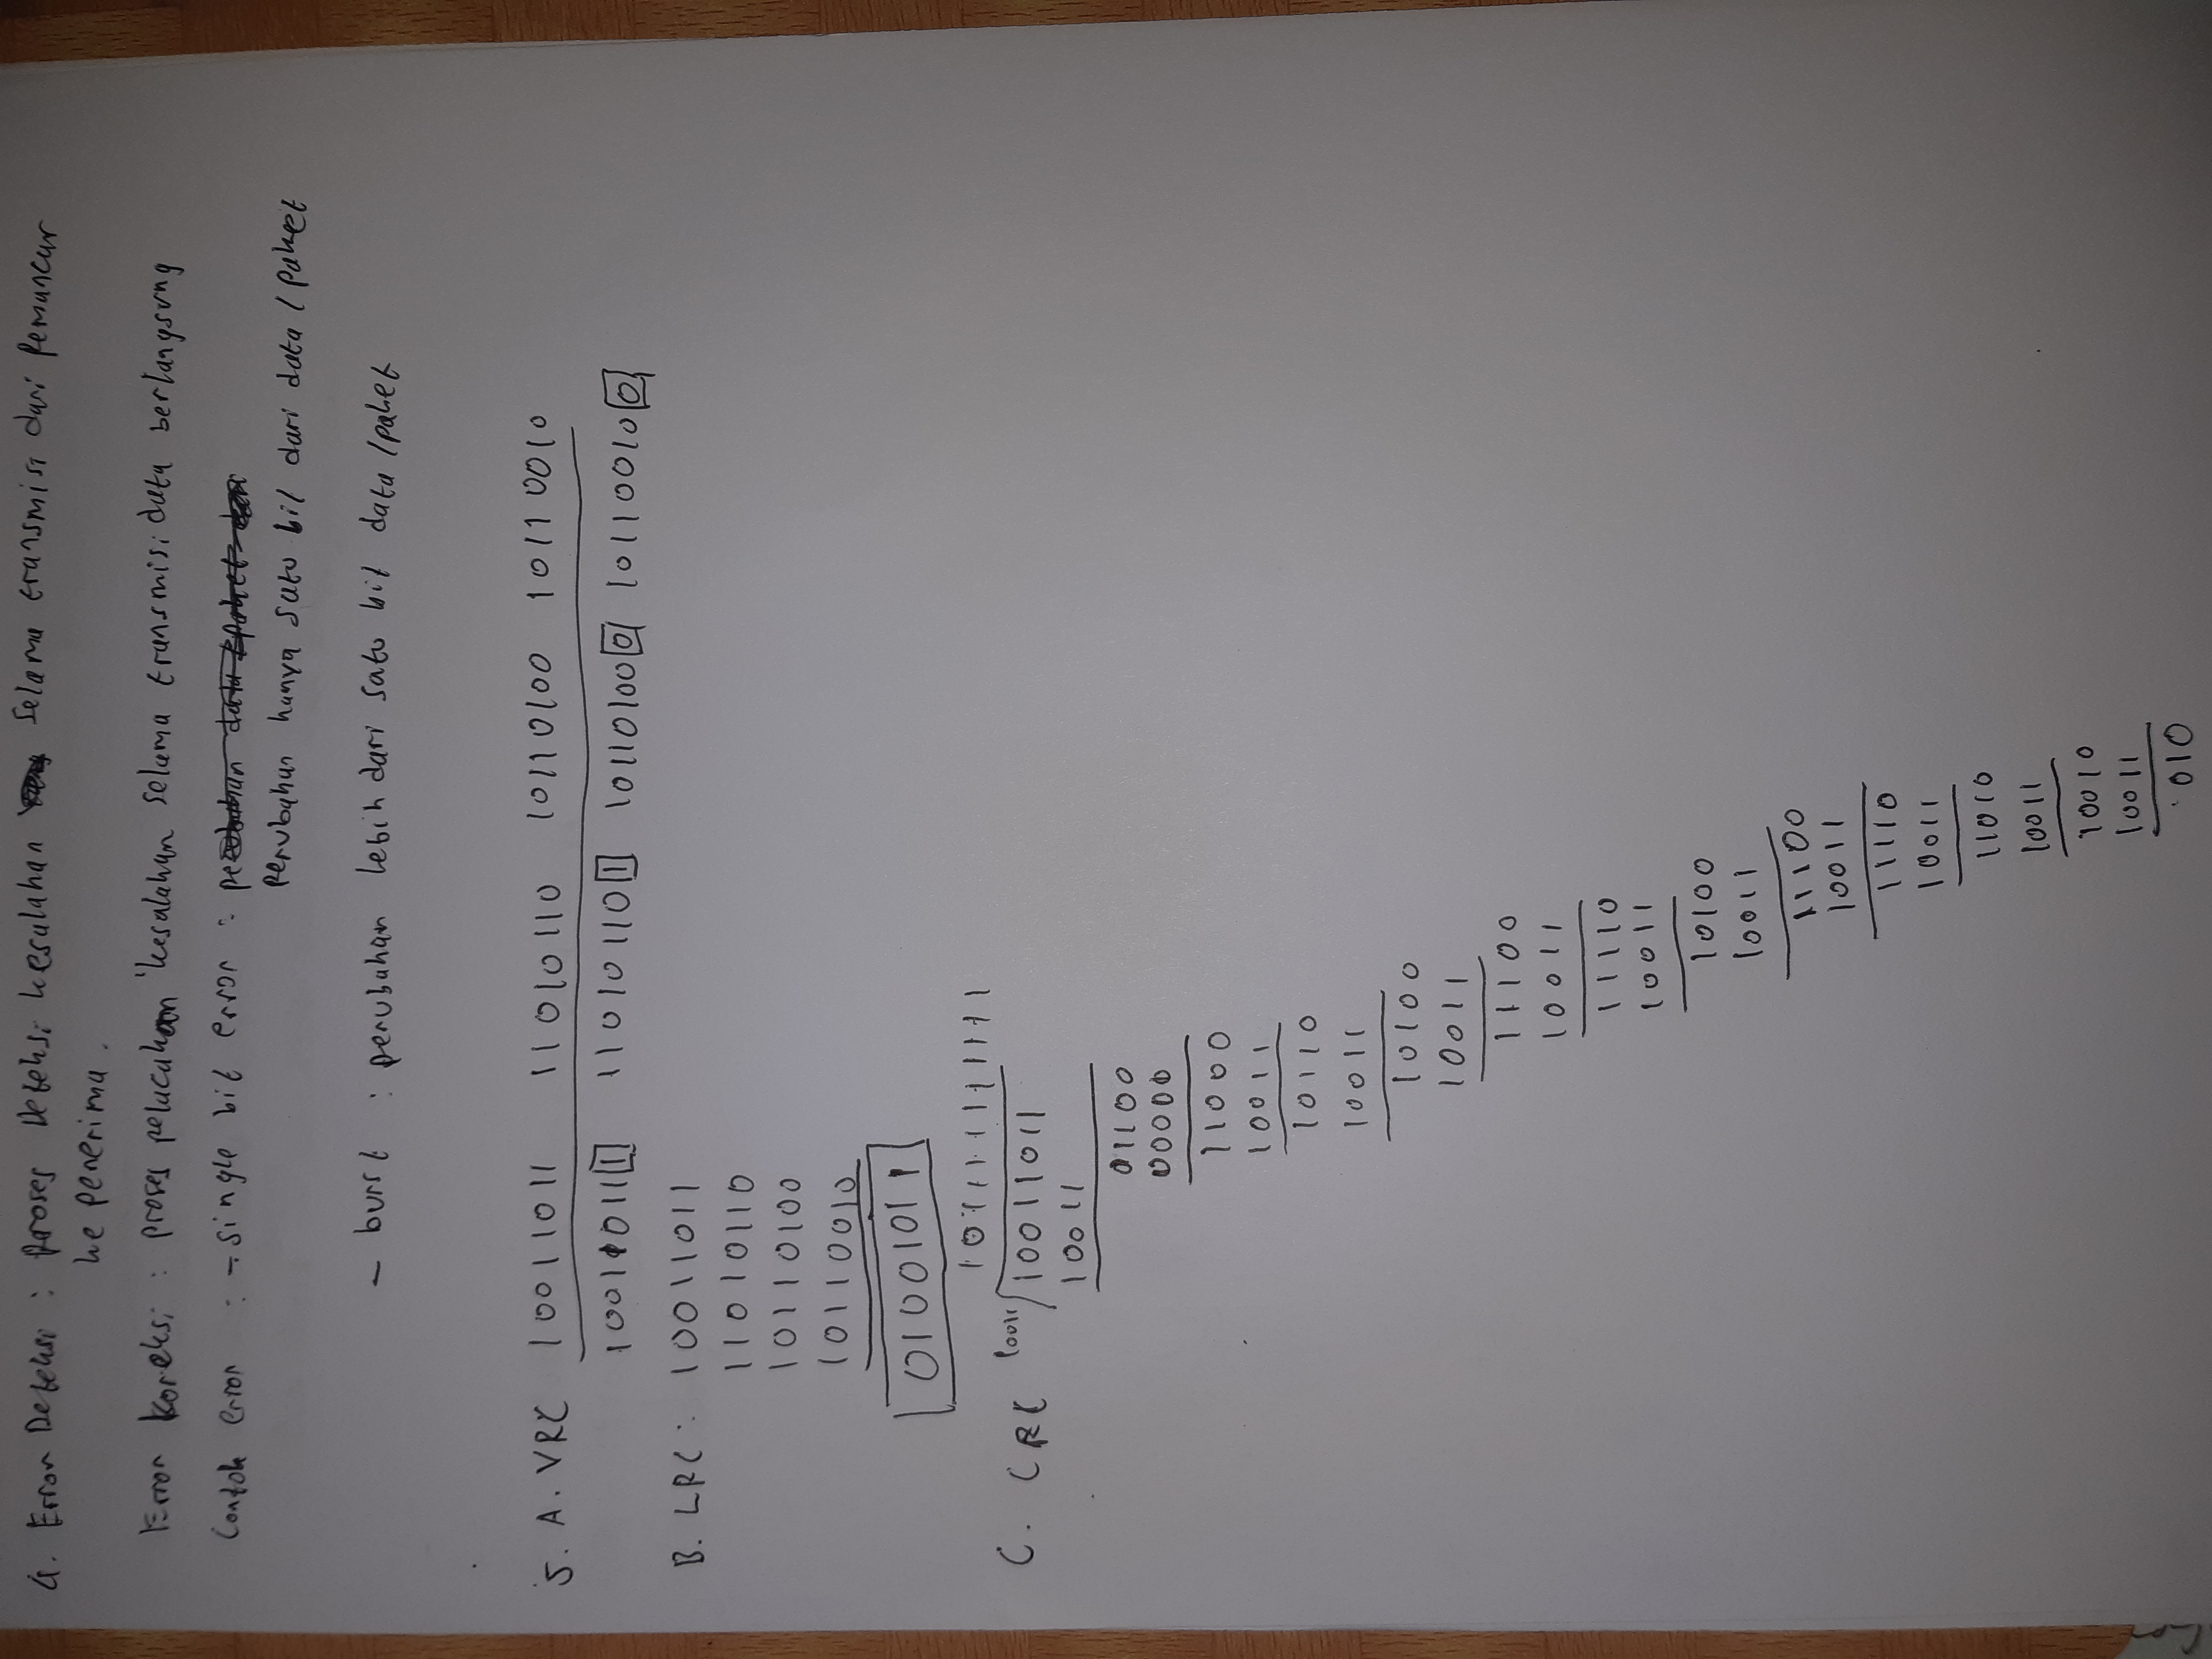 4. Error Deteksi : proses Deteksi kesalahan selama transmisi dari Pemancar
ke penerima.
Error Koreksi : proses pelacakan kesalahan selama transmisi data berlangsung
Contoh error : - single bit error :
Perubahan hanya satu bit dari data / paket
- burst : perubahan lebih dari satu bit data / paket
5. A. VRC 10011011 11010110 10110100 10110010
100110111 110101101 101101000 101100100
B. LRC : 10011011
11010110
10110100
10110010
01001011
1011111111111
C. CRC 10011 10011011
10011
01100
00000
11000
10011
10110
10011
10100
10011
11100
10011
11110
10011
10100
10011
11100
10011
11110
10011
11010
10011
10010
10011
010